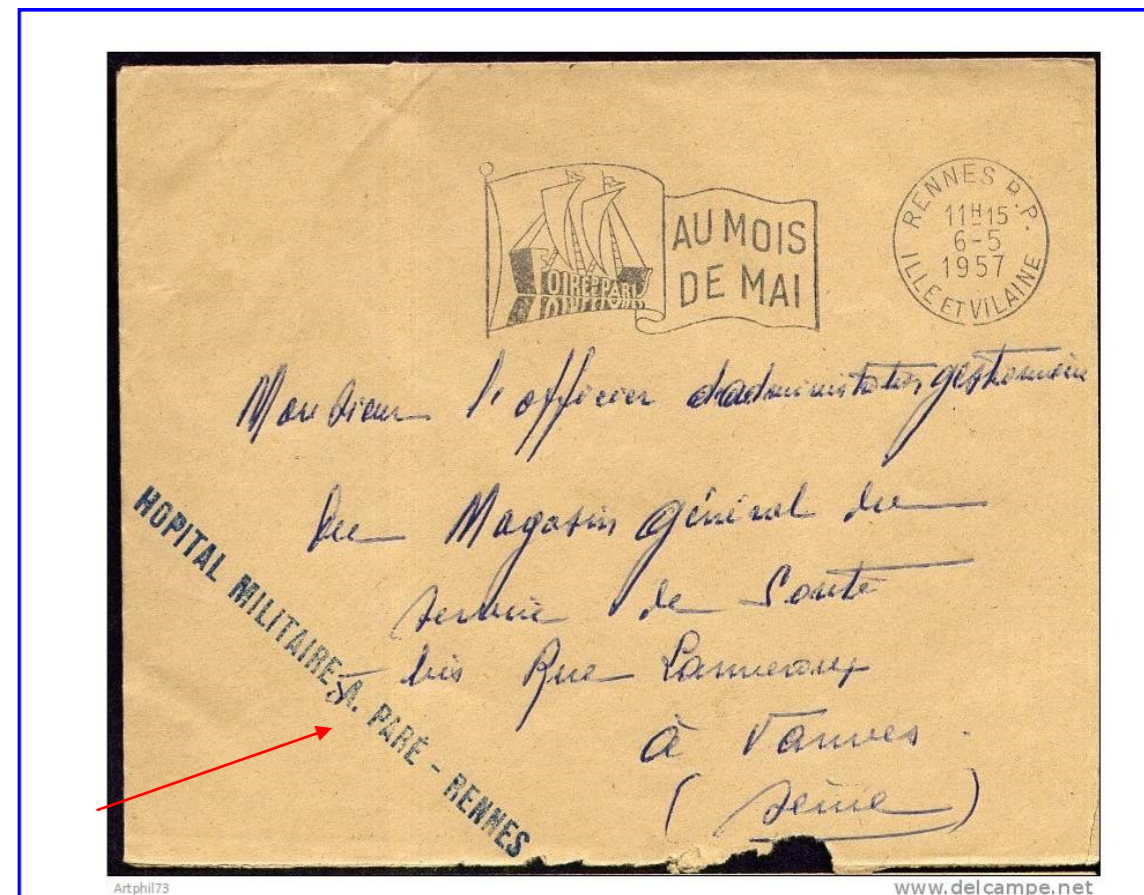 FOIRE DE PARIS
AU MOIS
DE MAI
RENNES R.P.
11H15
6-5
1957
ILLE ET VILAINE
Monsieur l'officier d'administration gestionnaire
du Magasin Général du
Service de Santé
5 bis Rue
à Vanves.
(Seine)
HOPITAL MILITAIRE A. PARÉ - RENNES
Artphil73
www.delcampe.net